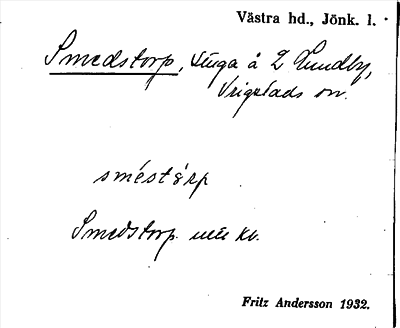 Västra hd., Jönk. l.
Smedstorp, stuga å 2 Lundby,
Vrigstads sn.
sméstårp
Smedstorp kv.
Fritz Andersson 1932.